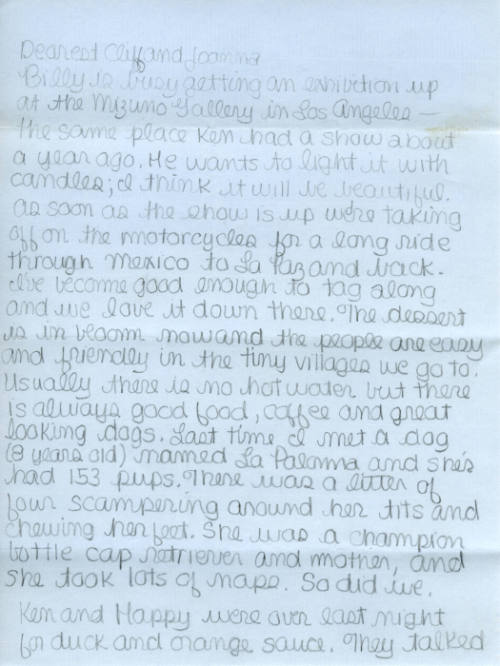 Dearest Cliff and Joanna
Billy is busy getting an exhibition up
at the Mizuno Gallery in Los Angeles —
the same place Ken had a show about
a year ago. He wants to light it with
candles; I think it will be beautiful.
as soon as the show is up we're taking
off on the motorcycles for a long ride
through Mexico to La Paz and back.
I've become good enough to tag along
and we love it down there. The dessert
is in bloom now and the people are easy
and friendly in the tiny villages we go to.
Usually there is no hot water but there
is always good food, coffee and great
looking dogs. Last time I met a dog
(8 years old) named La Paloma and she's
had 153 pups. There was a litter of
four scampering around her tits and
chewing her feet. She was a champion
bottle cap retriever and mother, and
she took lots of naps. So did we.
Ken and Happy were over last night
for duck and orange sauce. They talked